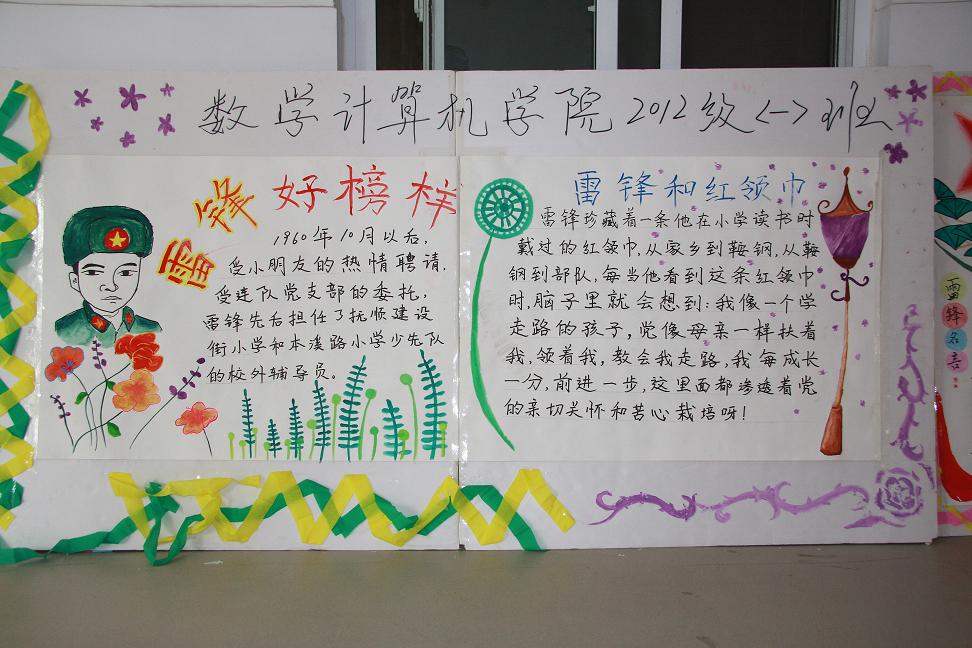 数学计算机学院2012级<一>班
雷锋 好榜样
1960年10月以后，
受小朋友的热情聘请，
受连队党支部的委托，
雷锋先后担任了抚顺建设
街小学和本溪路小学少先队
的校外辅导员。
雷锋和红领巾
雷锋珍藏着一条他在小学读书时
戴过的红领巾，从家乡到鞍钢，从鞍
钢到部队，每当他看到这条红领巾
时，脑子里就会想到：我像一个学
走路的孩子，党像母亲一样扶着
我，领着我，教会我走路，我每成长
一分，前进一步，这里面都渗透着党
的亲切关怀和苦心栽培呀！
雷锋名言